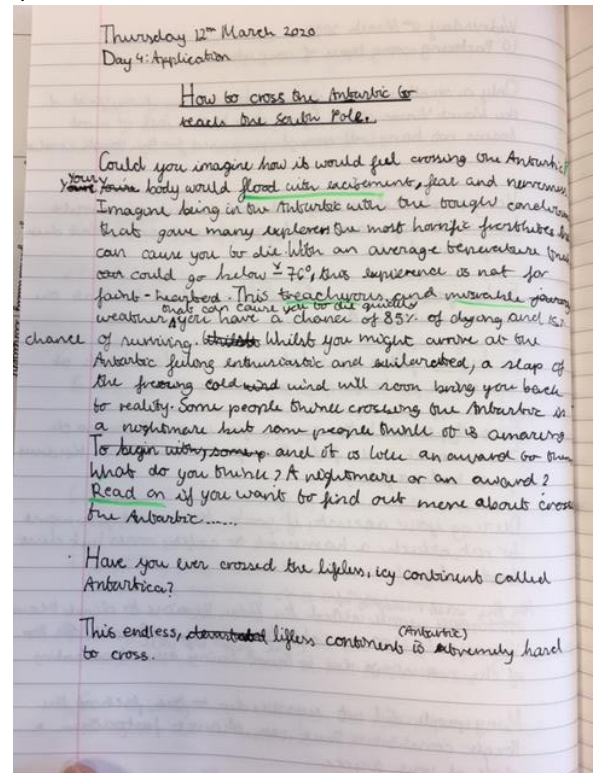 Thursday 12th March 2020
Day 4: Application
How to cross the Antartic to
reach the South Pole.
Could you imagine how it would feel crossing the Antartic?
Your body would flood with excitement, fear and nervousness
Imagine being in the Antartic with the tough conditions
that gave many explorers the most horrific frostbites
can cause you to die. With an average temperature that
could go below -76°, this experience is not for
faint-hearted. This treacherous, and miserable journey
that can cause you to die quickly
weather, you have a chance of 85% of dying and 15%
chance of surviving. Whilst you might arrive at the
Antartic feeling enthusiastic and exilarated, a slap of
the freezing cold wind will soon bring you back
to reality. Some people think crossing the Antartic is
a nightmare but some people think it is amazing
To begin with, some and it is like an award to them
What do you think? A nightmare or an award?
Read on if you want to find out more about cross
the Antartic......
Have you ever crossed the lifeless, icy continent called
Antartica?
This endless, lifless continent (Antartic) is extremely hard
to cross.